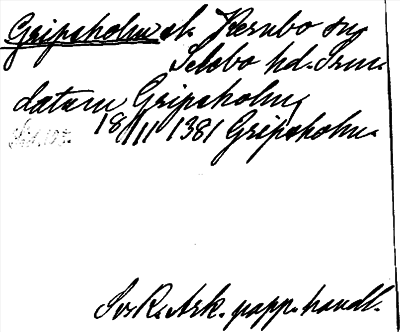 Gripsholm sl. Kernbo sn,
Selebo hd. Srm.
datum Gripsholm,
18/11 1381 Gripsholm.
SvR. Ark. papp. handl.